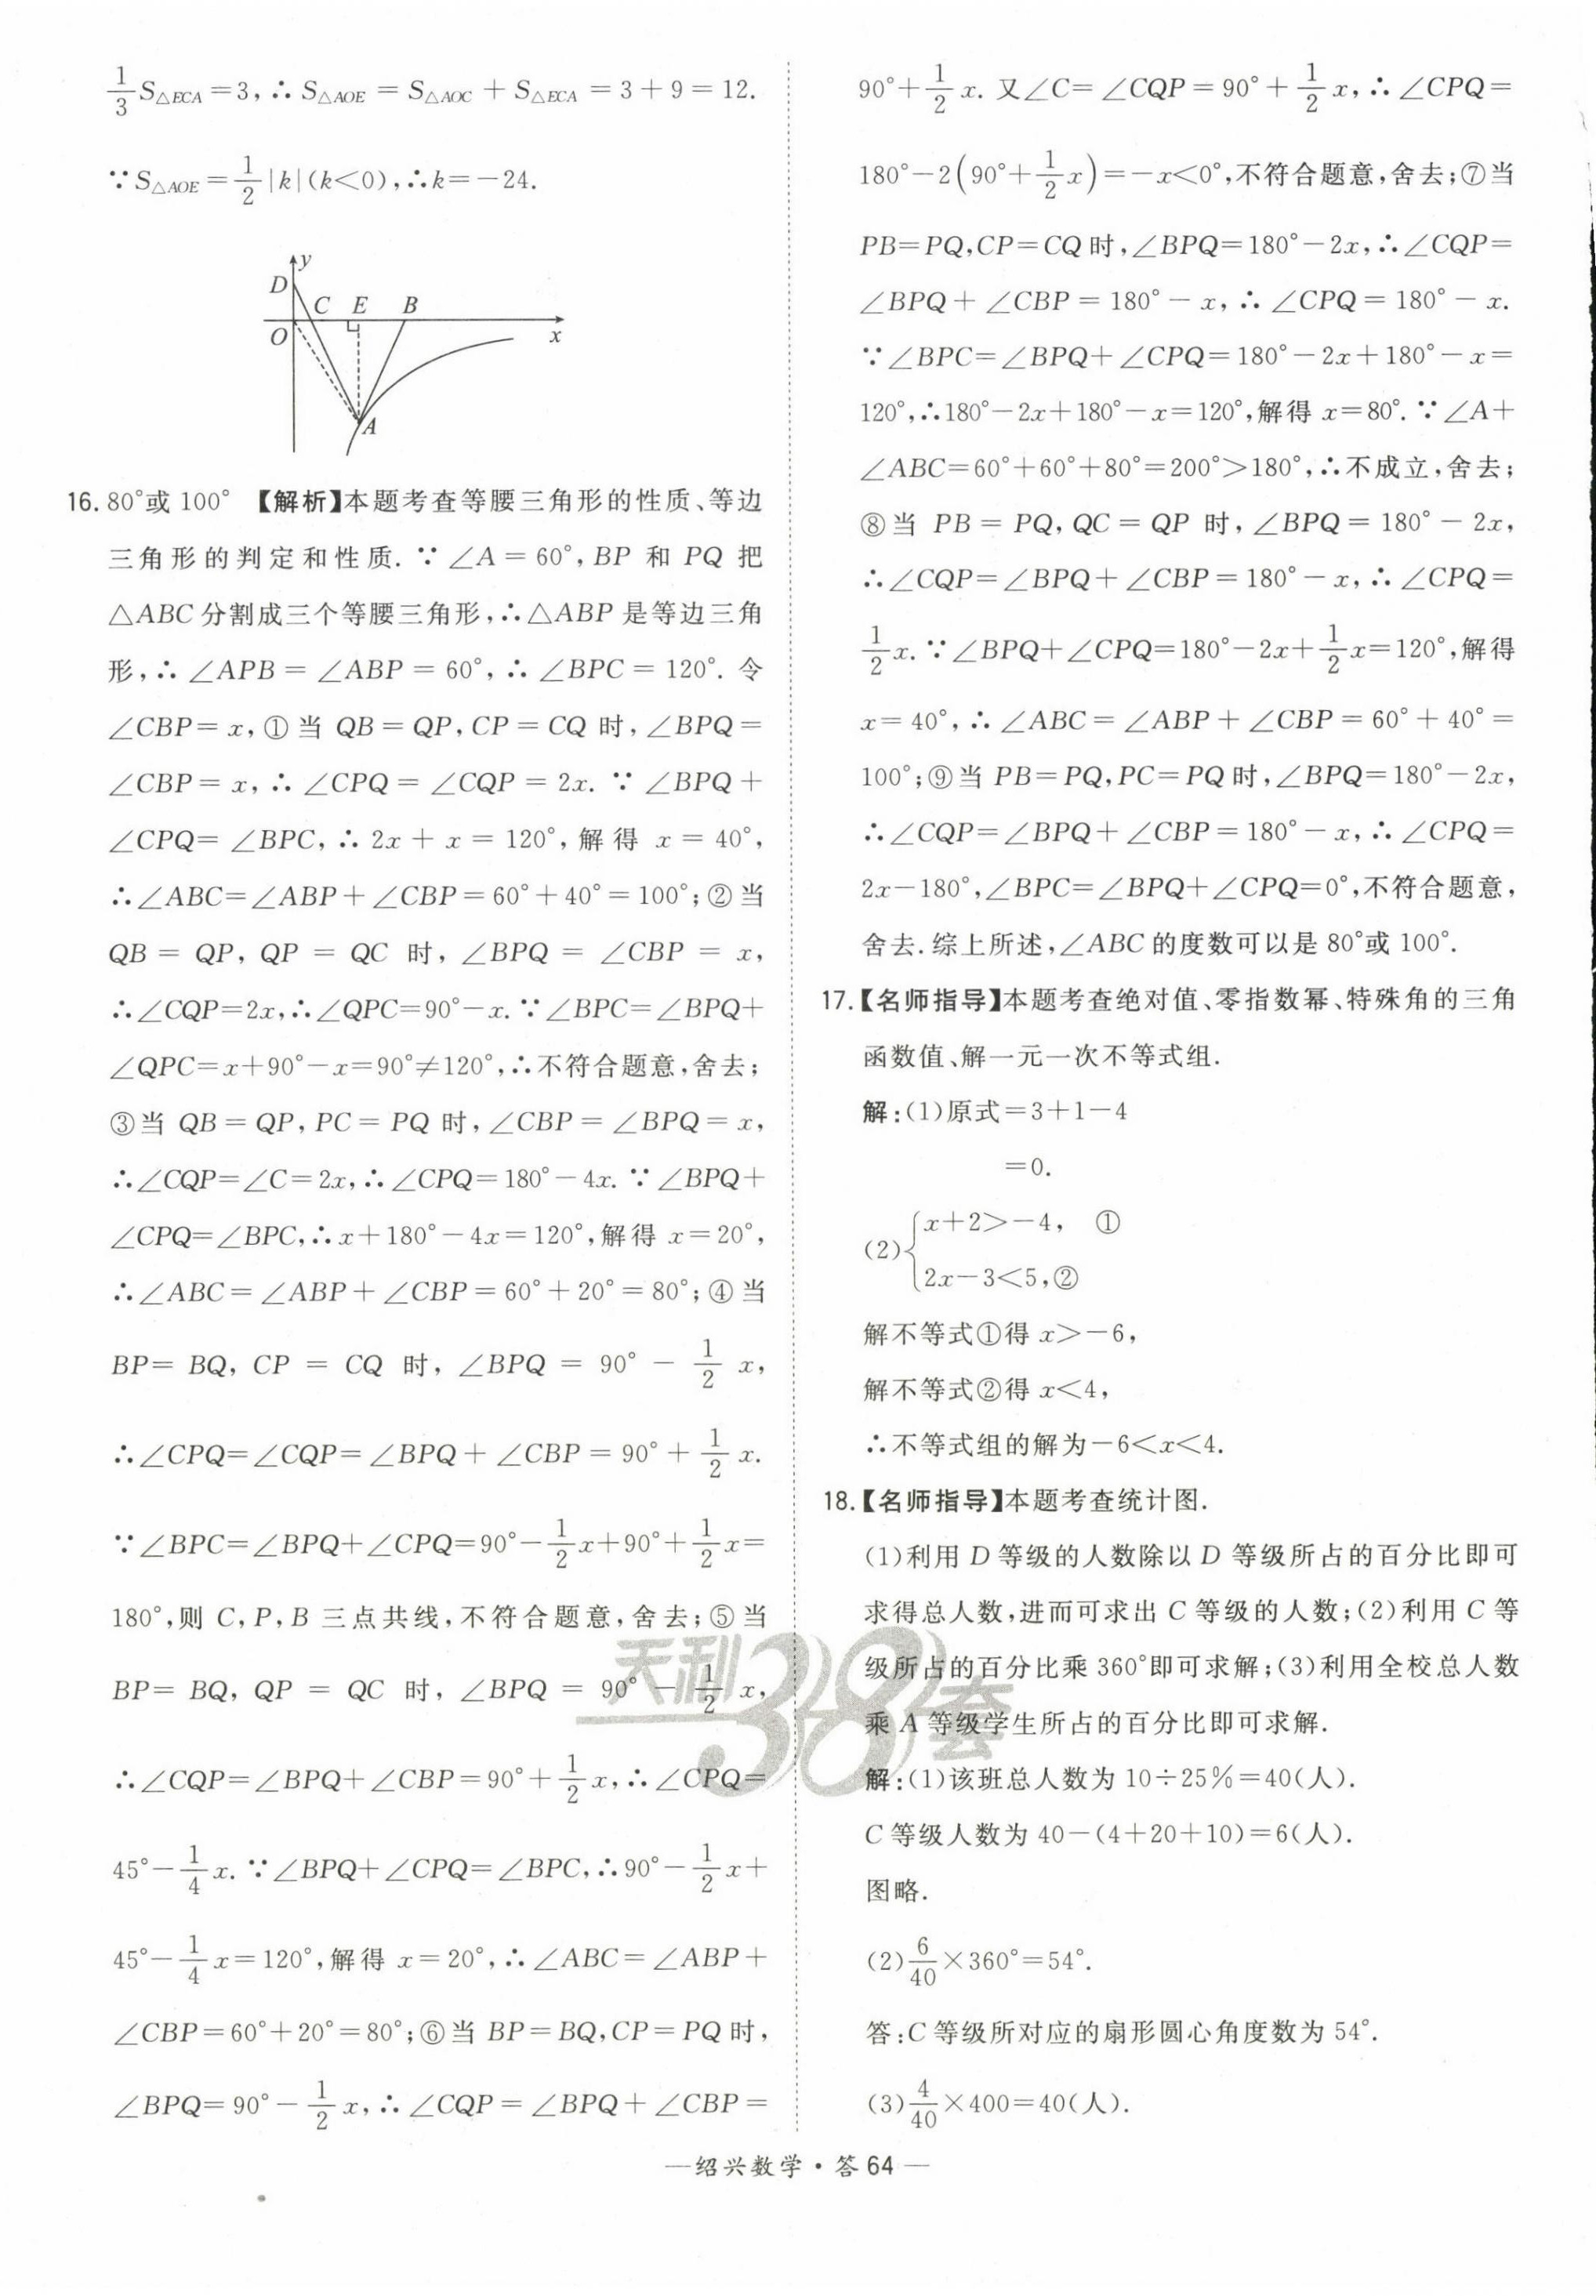 1/3 S△ECA=3,∴S△AOE=S△AOC+S△ECA=3+9=12.
∵S△AOE=1/2|k|(k<0),∴k=-24.
y
D
C E B
O
x
A
16. 80°或 100° 【解析】本题考查等腰三角形的性质、等边
三角形的判定和性质.∵∠A=60°,BP 和 PQ 把
△ABC 分割成三个等腰三角形,∴△ABP 是等边三角
形,∴∠APB=∠ABP=60°,∴∠BPC=120°.令
∠CBP=x,①当 QB=QP,CP=CQ 时,∠BPQ=
∠CBP=x,∴∠CPQ=∠CQP=2x.∵∠BPQ+
∠CPQ=∠BPC,∴2x+x=120°,解得 x=40°,
∴∠ABC=∠ABP+∠CBP=60°+40°=100°;②当
QB=QP,QP=QC 时,∠BPQ=∠CBP=x,
∴∠CQP=2x,∴∠QPC=90°-x.∵∠BPC=∠BPQ+
∠QPC=x+90°-x=90°≠120°,∴不符合题意,舍去;
③当 QB=QP,PC=PQ 时,∠CBP=∠BPQ=x,
∴∠CQP=∠C=2x,∴∠CPQ=180°-4x.∵∠BPQ+
∠CPQ=∠BPC,∴x+180°-4x=120°,解得 x=20°,
∴∠ABC=∠ABP+∠CBP=60°+20°=80°;④当
BP=BQ,CP=CQ 时,∠BPQ=90°-1/2 x,
∴∠CPQ=∠CQP=∠BPQ+∠CBP=90°+1/2 x.
∵∠BPC=∠BPQ+∠CPQ=90°-1/2 x+90°+1/2 x=
180°,则 C,P,B 三点共线,不符合题意,舍去;⑤当
BP=BQ,QP=QC 时,∠BPQ=90°-1/2 x,
∴∠CQP=∠BPQ+∠CBP=90°+1/2 x,∴∠CPQ=
45°-1/4 x.∵∠BPQ+∠CPQ=∠BPC,∴90°-1/2 x+
45°-1/4 x=120°,解得 x=20°,∴∠ABC=∠ABP+
∠CBP=60°+20°=80°;⑥当 BP=BQ,CP=PQ 时,
∠BPQ=90°-1/2 x,∴∠CQP=∠BPQ+∠CBP=
90°+1/2 x.又∠C=∠CQP=90°+1/2 x,∴∠CPQ=
180°-2(90°+1/2 x)=-x<0°,不符合题意,舍去;⑦当
PB=PQ,CP=CQ 时,∠BPQ=180°-2x,∴∠CQP=
∠BPQ+∠CBP=180°-x,∴∠CPQ=180°-x.
∵∠BPC=∠BPQ+∠CPQ=180°-2x+180°-x=
120°,∴180°-2x+180°-x=120°,解得 x=80°.∵∠A+
∠ABC=60°+60°+80°=200°>180°,∴不成立,舍去;
⑧当 PB=PQ,QC=QP 时,∠BPQ=180°-2x,
∴∠CQP=∠BPQ+∠CBP=180°-x,∴∠CPQ=
1/2 x.∵∠BPQ+∠CPQ=180°-2x+1/2 x=120°,解得
x=40°,∴∠ABC=∠ABP+∠CBP=60°+40°=
100°;⑨当 PB=PQ,PC=PQ 时,∠BPQ=180°-2x,
∴∠CQP=∠BPQ+∠CBP=180°-x,∴∠CPQ=
2x-180°,∠BPC=∠BPQ+∠CPQ=0°,不符合题意,
舍去.综上所述,∠ABC 的度数可以是 80°或 100°.
17.【名师指导】本题考查绝对值、零指数幂、特殊角的三角
函数值、解一元一次不等式组.
解:(1)原式=3+1-4
=0.
(2){x+2>-4, ①
2x-3<5,②
解不等式①得 x>-6,
解不等式②得 x<4,
∴不等式组的解为-6<x<4.
18.【名师指导】本题考查统计图.
(1)利用 D 等级的人数除以 D 等级所占的百分比即可
求得总人数,进而可求出 C 等级的人数;(2)利用 C 等
级所占的百分比乘 360°即可求解;(3)利用全校总人数
乘 A 等级学生所占的百分比即可求解.
解:(1)该班总人数为 10÷25%=40(人).
C 等级人数为 40-(4+20+10)=6(人).
图略.
(2)6/40×360°=54°.
答:C 等级所对应的扇形圆心角度数为 54°.
(3)4/40×400=40(人).
天利38套
—绍兴数学·答 64—